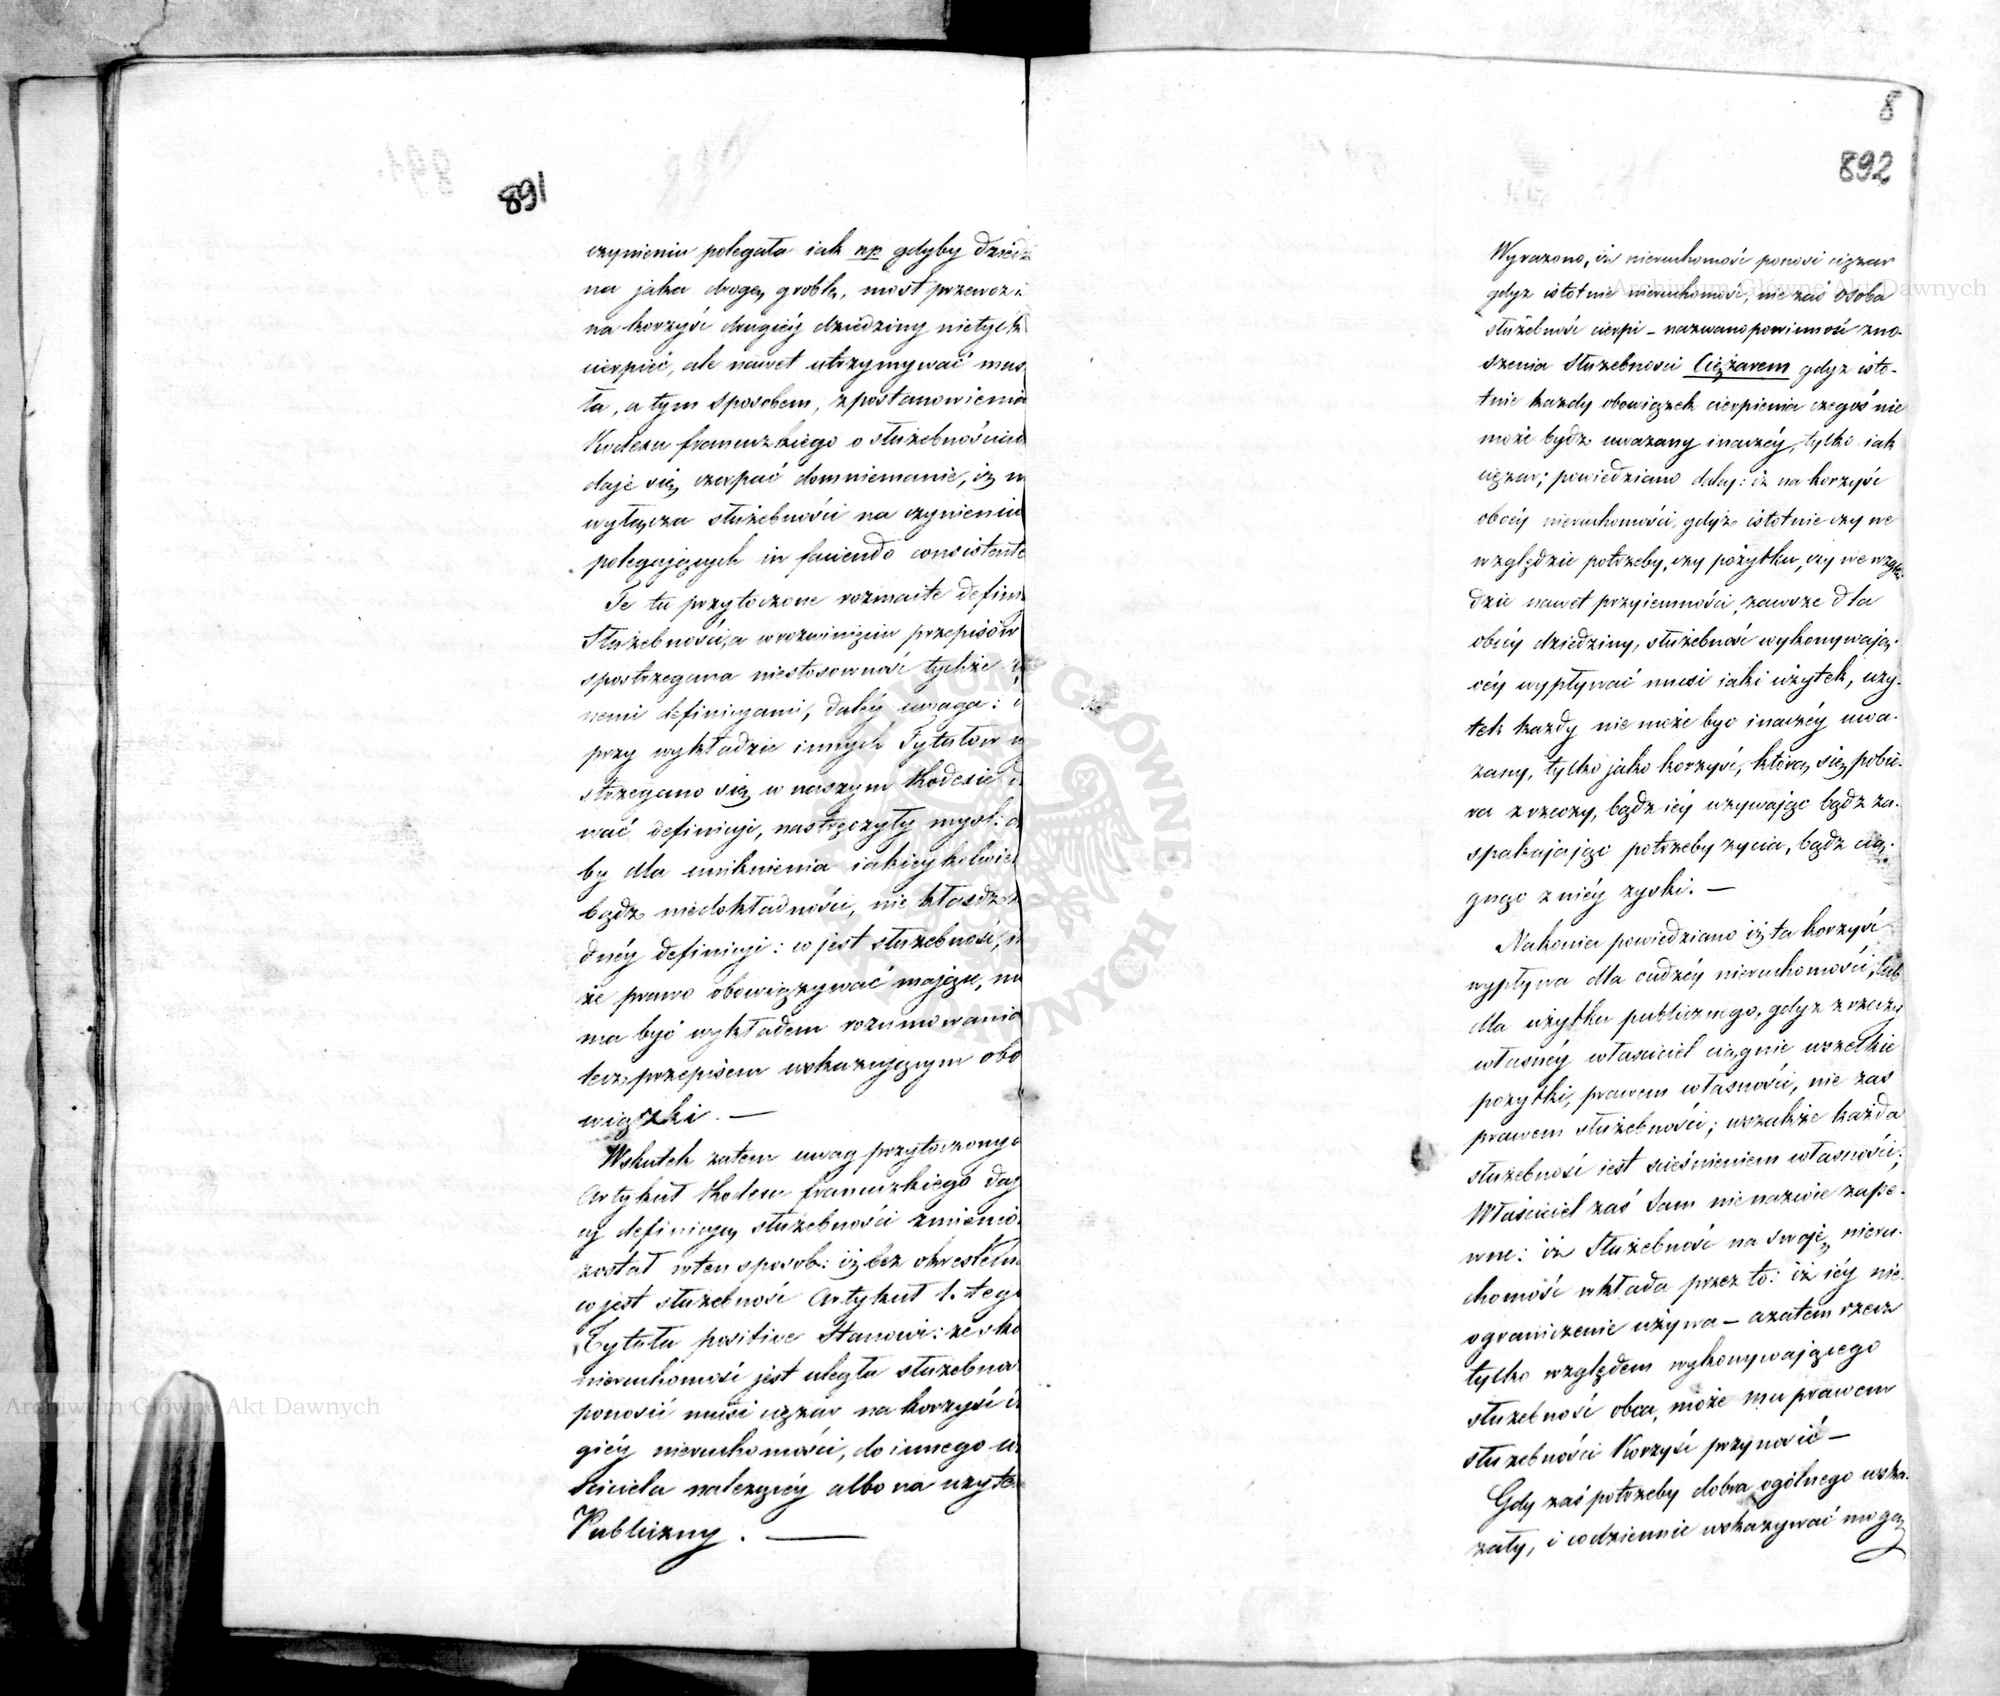 891
czynieniu polegała iak np gdyby dziedzi
na jaka drogę, groblę, most przewoz i
na korzyść drugiéy dziedziny nietylk
cierpieć, ale nawet utrzymywać mus
ła, a tym sposobem, z postanowienia
Kodexu francuzkiego o służebnościach
daje się czerpać domniemanie, iż n
wyłącza służebności na czynieniu
polegających in faciendo consistente
Te tu przytoczone rozmaite defini
Służebności, a w rozwinięciu przepisów
spostrzegana niestosowność tychże z
nemi definicyami, daléy uwaga: i
przy wykładzie innych Tytułów w
strzegano się w naszym Kodexie d
wać definicyi, nastręczyły myśl: a
by dla uniknienia iakieykolwiek
bądź niedokładności, nie kłaść ża
dnéy definicyi: co jest służebność, u
że prawo obowiązywać mające, nie
ma być wykładem rozumowania
lecz przepisem wskazującym obo
wiązki. —
Wskutek zatem uwag przytoczonych
Artykuł Kodexu francuzkiego daj
cy definicyą służebności zmienio
został w ten sposob: iż bez określenia
co jest służebność Artykuł 1. tego
Tytułu positive Stanowi: że sko
nieruchomość jest uległa służebno
ponosić musi ciężar na korzyść d
giéy nieruchomości, do innego w
ściciela należącéy albo na użyte
Publiczny. —
8
892
Wyrażono, iż nieruchomość ponosi ciężar
gdyż istotnie nieruchomość, nie zaś osoba
służebność cierpi – nazwano powinność zno-
szenia Służebności Ciężarem gdyż isto-
tnie każdy obowiązek cierpienia czegoś nie
może bydź uważany inaczéy, tylko iak
ciężar; powiedziano daléy: iż na korzyść
obcéy nieruchomości, gdyż istotnie czy we
względzie potrzeby, czy pożytku, czy we wzglę-
dzie nawet przyiemności, zawsze dla
obcéy dziedziny, służebność wykonywają-
céy wypływać musi iaki użytek, uży-
tek każdy nie może być inaczéy uwa-
żany, tylko jako korzyść, którą się pobie-
ra z rzeczy, bądź iéy używając bądź za-
spakajając potrzeby życia, bądź cią-
gnąc z niéy zyski. —
Nakoniec powiedziano iż ta korzyść
wypływa dla cudzéy nieruchomości, lub
dla użytku publicznego, gdyż z rzeczy
własnéy właściciel ciągnie wszelkie
pożytki, prawem własności, nie zaś
prawem służebności; wszakże każda
służebność iest ścieśnieniem własności;
Właściciel zaś Sam nie nazwie zape-
wne: iż Służebność na swoję nieru-
chomość wkłada przez to: iż iéy nie-
ograniczenie używa – a zatem rzecz
tylko względem wykonywającego
służebność obca, może mu prawem
służebności Korzyść przynosić –
Gdy zaś potrzeby dobra ogólnego wska-
zały, i codziennie wskazywać mogą
Archiwum Główne Akt Dawnych
Archiwum Główne Akt Dawnych